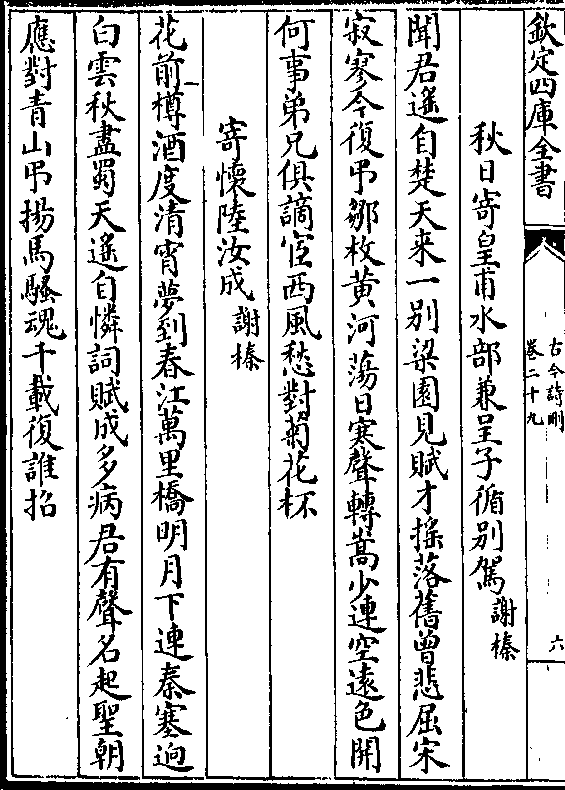 欽定四庫全書
古今詩刪
卷二十九
六
秋日寄皇甫水部兼呈子循別駕 謝榛
聞君遙自楚天來一別梁園見賦才搖落舊曾悲屈宋
寂寥今復弔鄒枚黄河蕩日寒聲轉嵩少連空遠色開
何事弟兄俱謫宦西風愁對菊花杯
寄懷陸汝成 謝榛
花前樽酒度清宵夢到春江萬里橋明月下連秦塞逈
白雲秋盡蜀天遙自憐詞賦成多病君有聲名起聖朝
應對青山弔揚馬騷魂千載復誰招